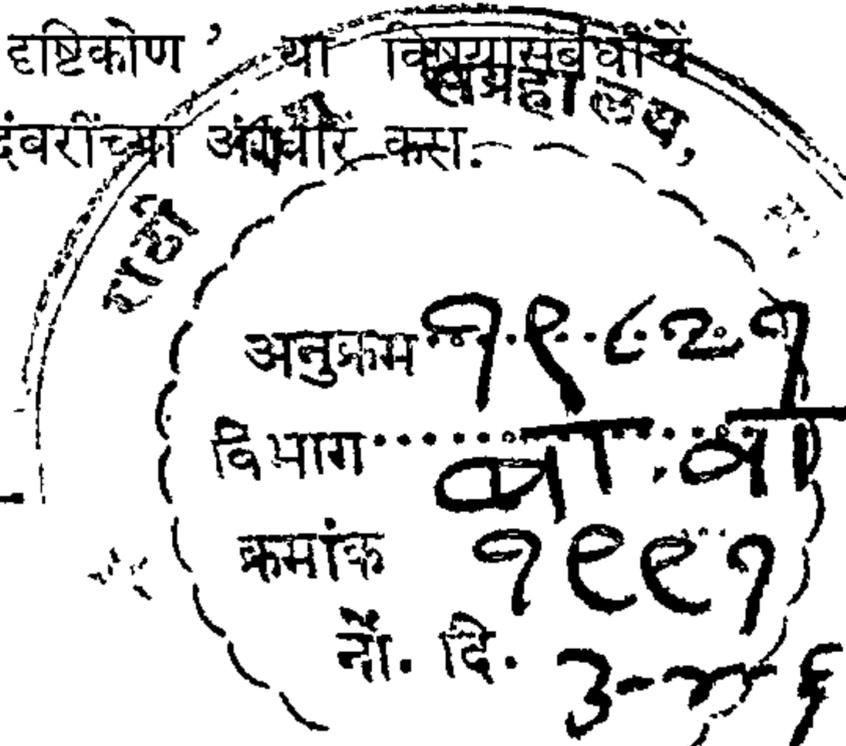 दृष्टिकोण ’ या विषयासंबंधीचें
दंबरींच्या आधारें करा.
संग्रहालय,
राठी
अनुक्रम १९८२१
विभाग वा.वा
क्रमांक १९९१
नों. दि. ३-